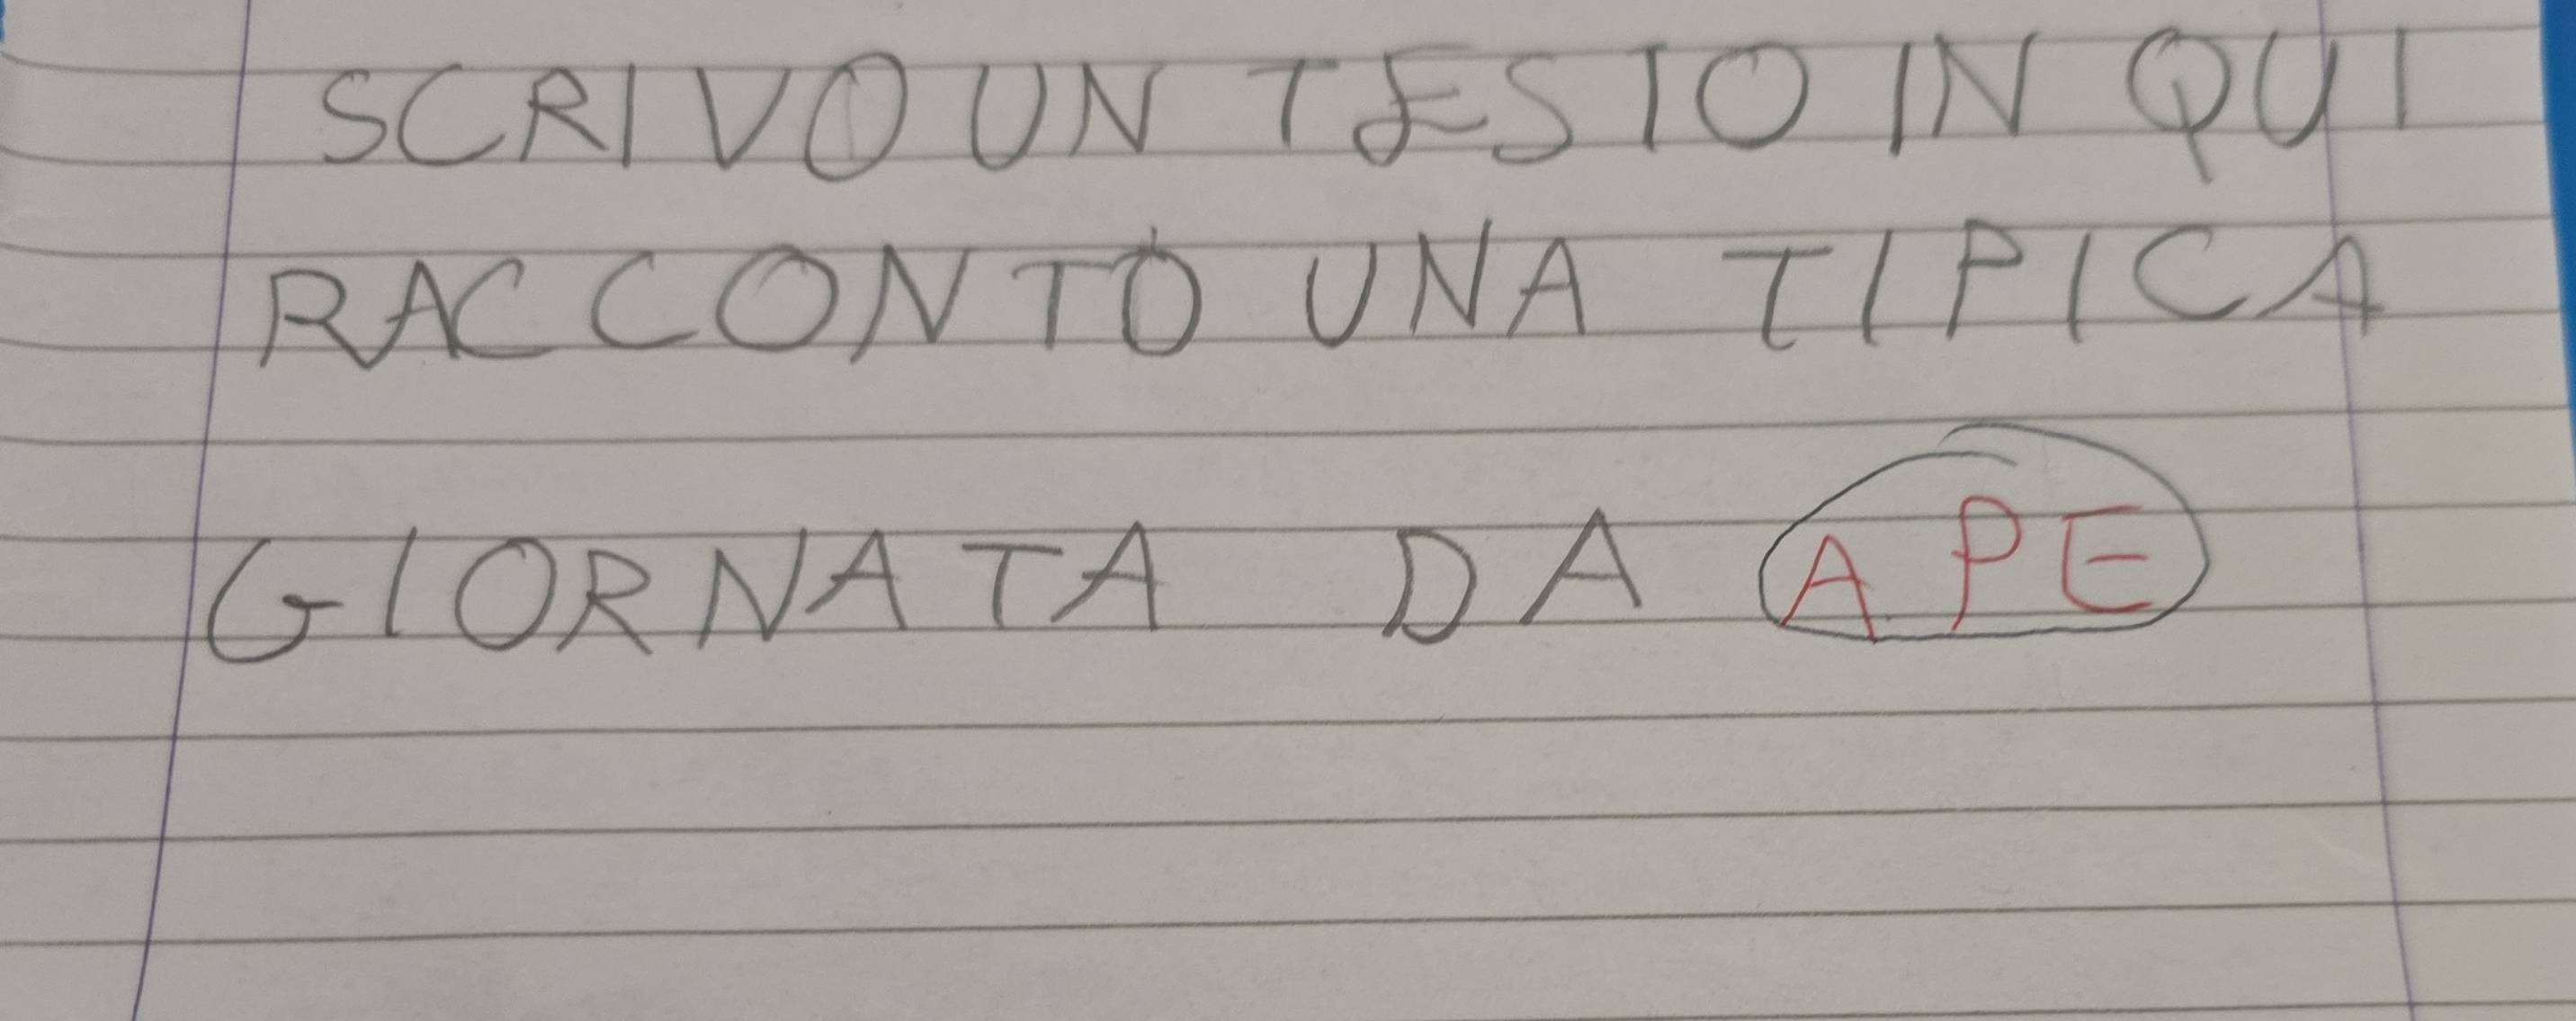 SCRIVO UN TESTO IN QUI
RACCONTO UNA TIPICA
GIORNATA DA APE